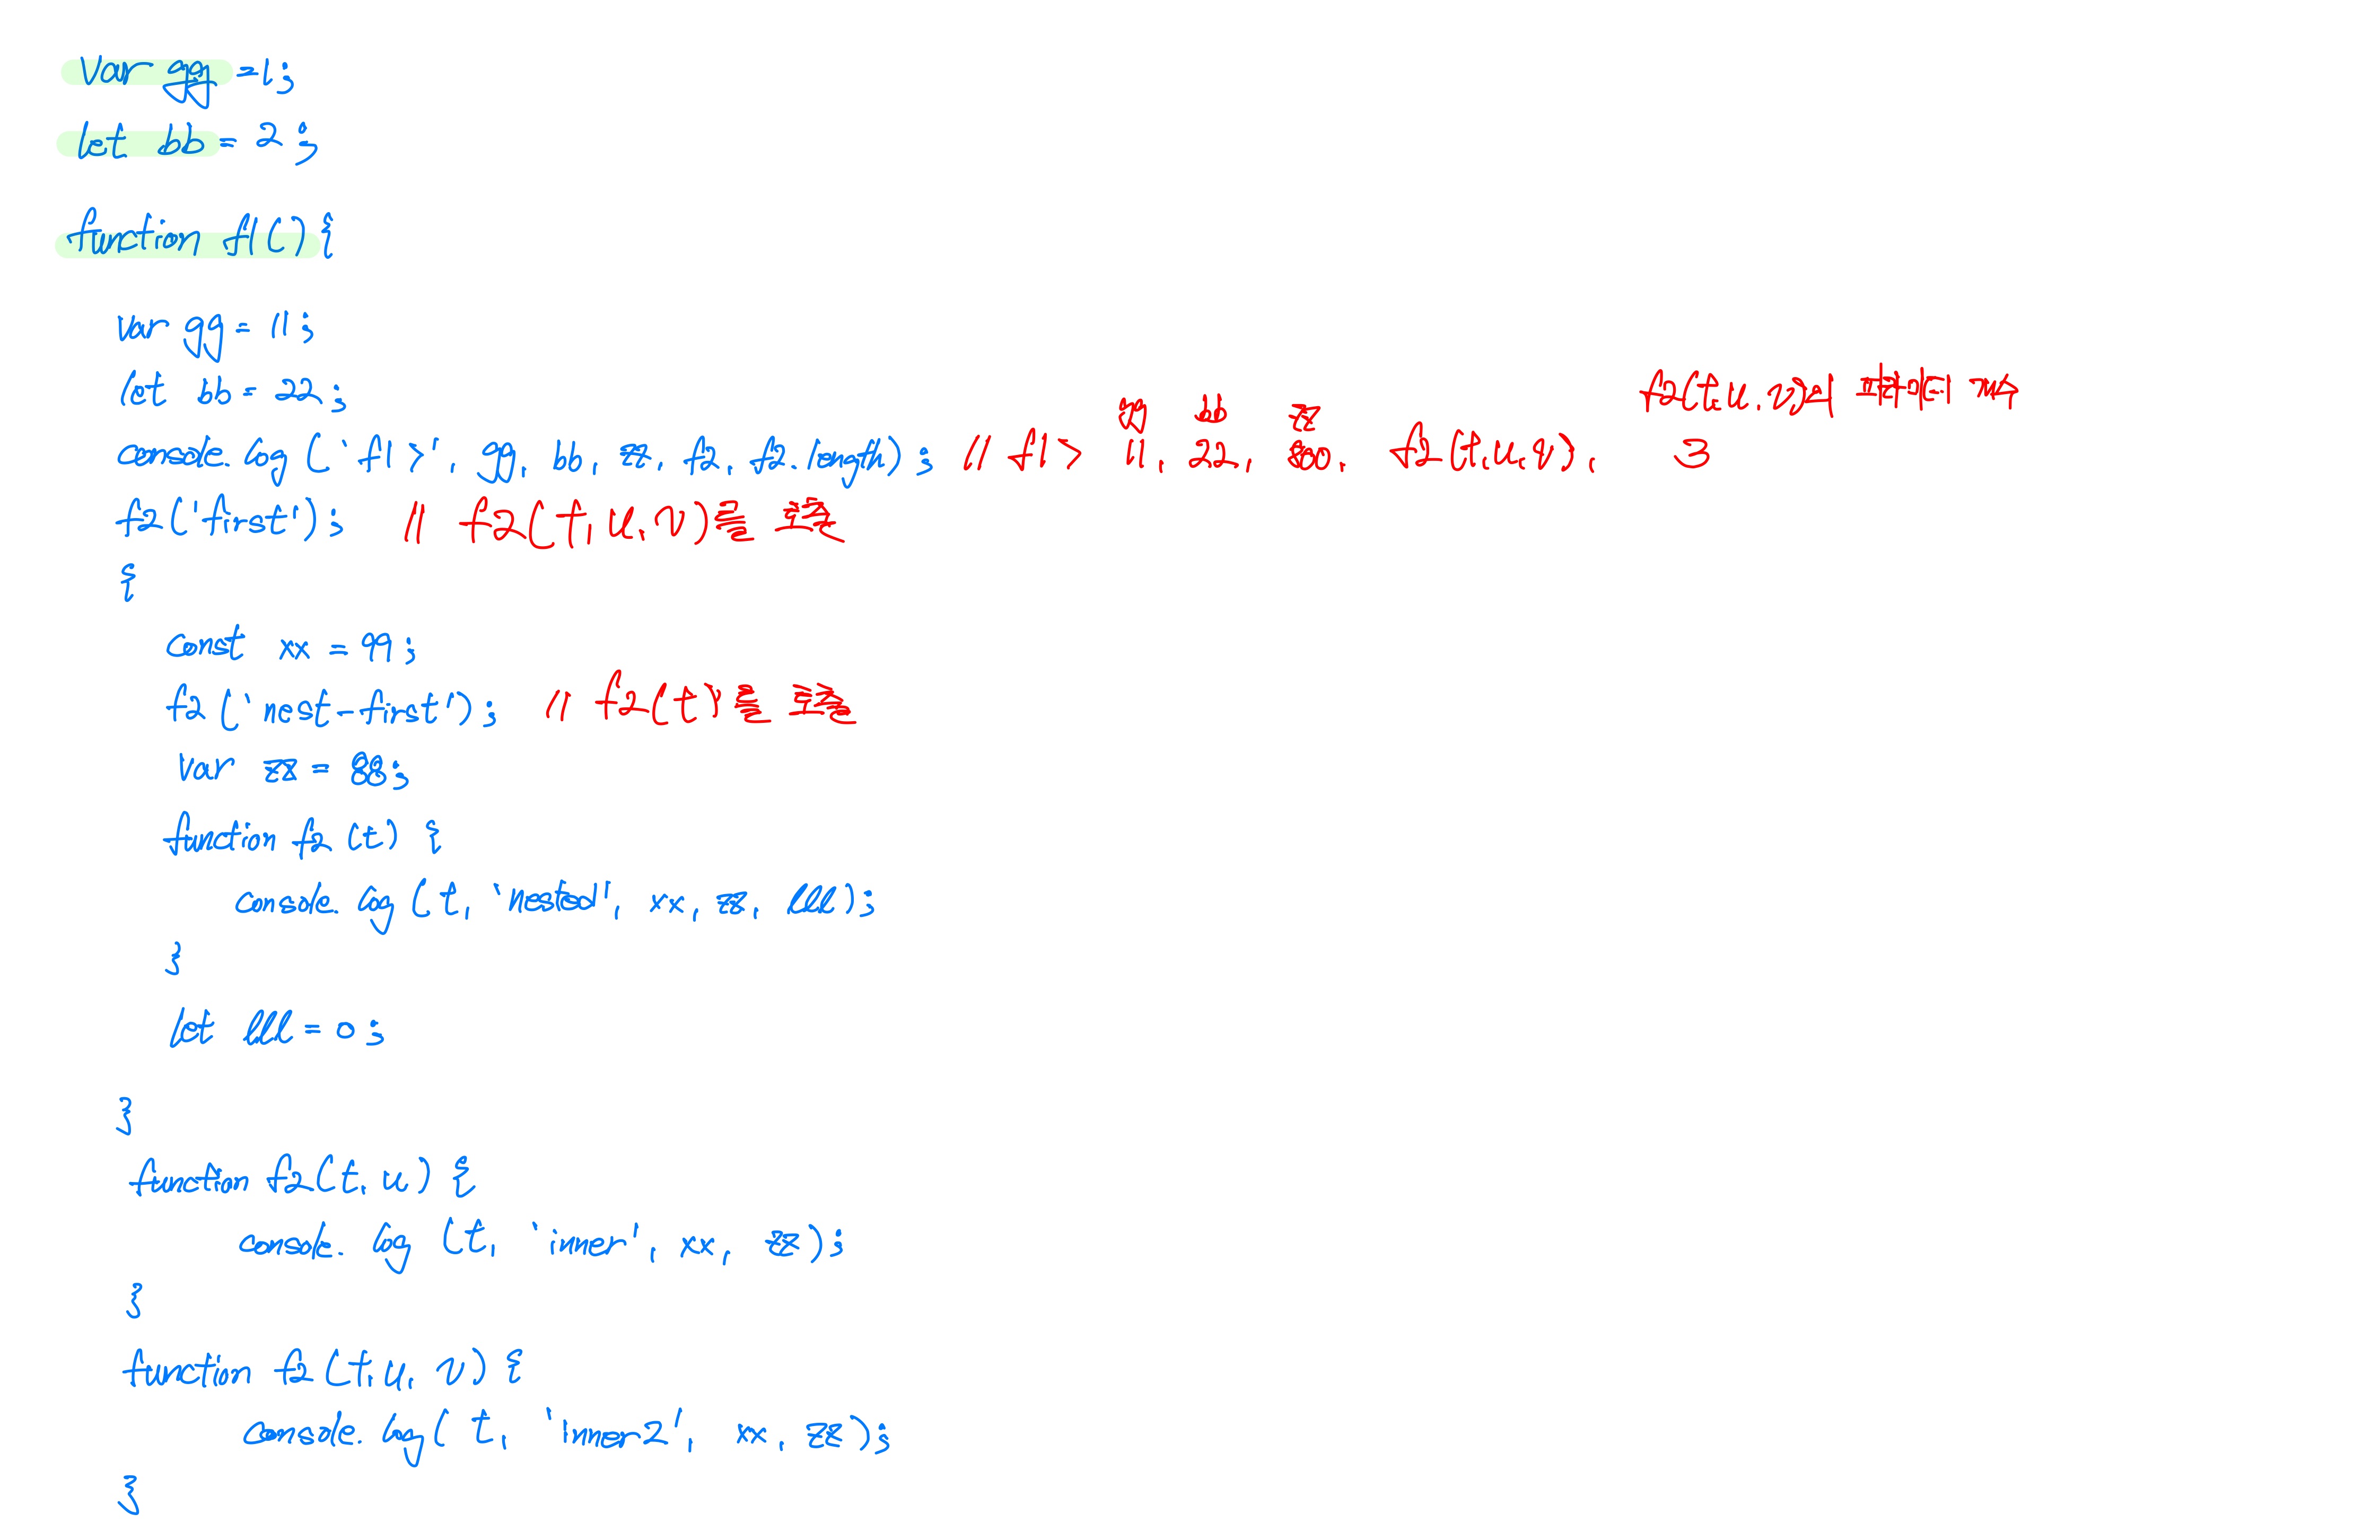 var gg = 1;
let bb = 2;
function f1() {
var gg = 11;
let bb = 22;
gg bb zz f2(t,u,v)의 파라미터 개수
console.log('f1>', gg, bb, zz, f2, f2.length); // f1> 11, 22, f2(t,u,v), 3
f2('first'); // f2(t,u,v)를 호출
{
const xx = 99;
f2('nest-first'); // f2(t)를 호출
var zz = 88;
function f2(t) {
console.log(t, 'nested', xx, zz, lll);
}
let lll = 0;
}
function f2(t,u) {
console.log(t, 'inner', xx, zz);
}
function f2(t,u,v) {
console.log(t, 'inner2', xx, zz);
}